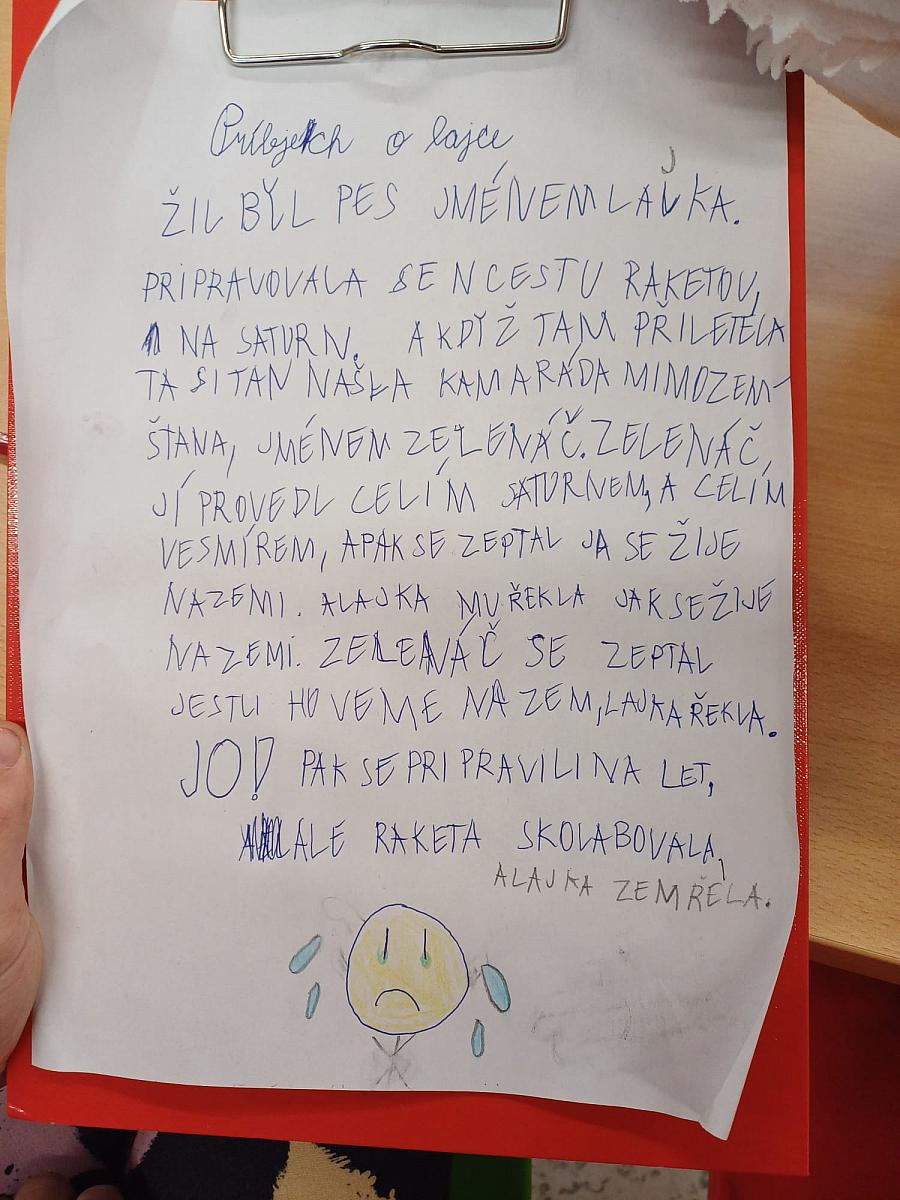 Príbjekch o lajce
ŽIL BYL PES JMÉNEM LAJKA.
PRIPRAVOVALA SE N CESTU RAKETOU,
NA SATURN. A KDYŽ TAM PŘILETĚLA
TA SI TAN NAŠLA KAMARÁDA MIMOZEM
ŠTANA, JMÉNEM ZELENÁČ. ZELENÁČ,
JÍ PROVEDL CELÍM SATURNEM, A CELÍM
VESMÍREM, APAK SE ZEPTAL JA SE ŽIJE
NAZEMI. ALAJKA MU ŘEKLA JAK SEŽIJE
NAZEMI. ZELENÁČ SE ZEPTAL
JESTLI HO VEME NA ZEM, LAJKA ŘEKLA.
JO! PAK SE PRIPRAVILI NA LET,
ALE RAKETA SKOLABOVALA,
ALAJKA ZEMŘELA.